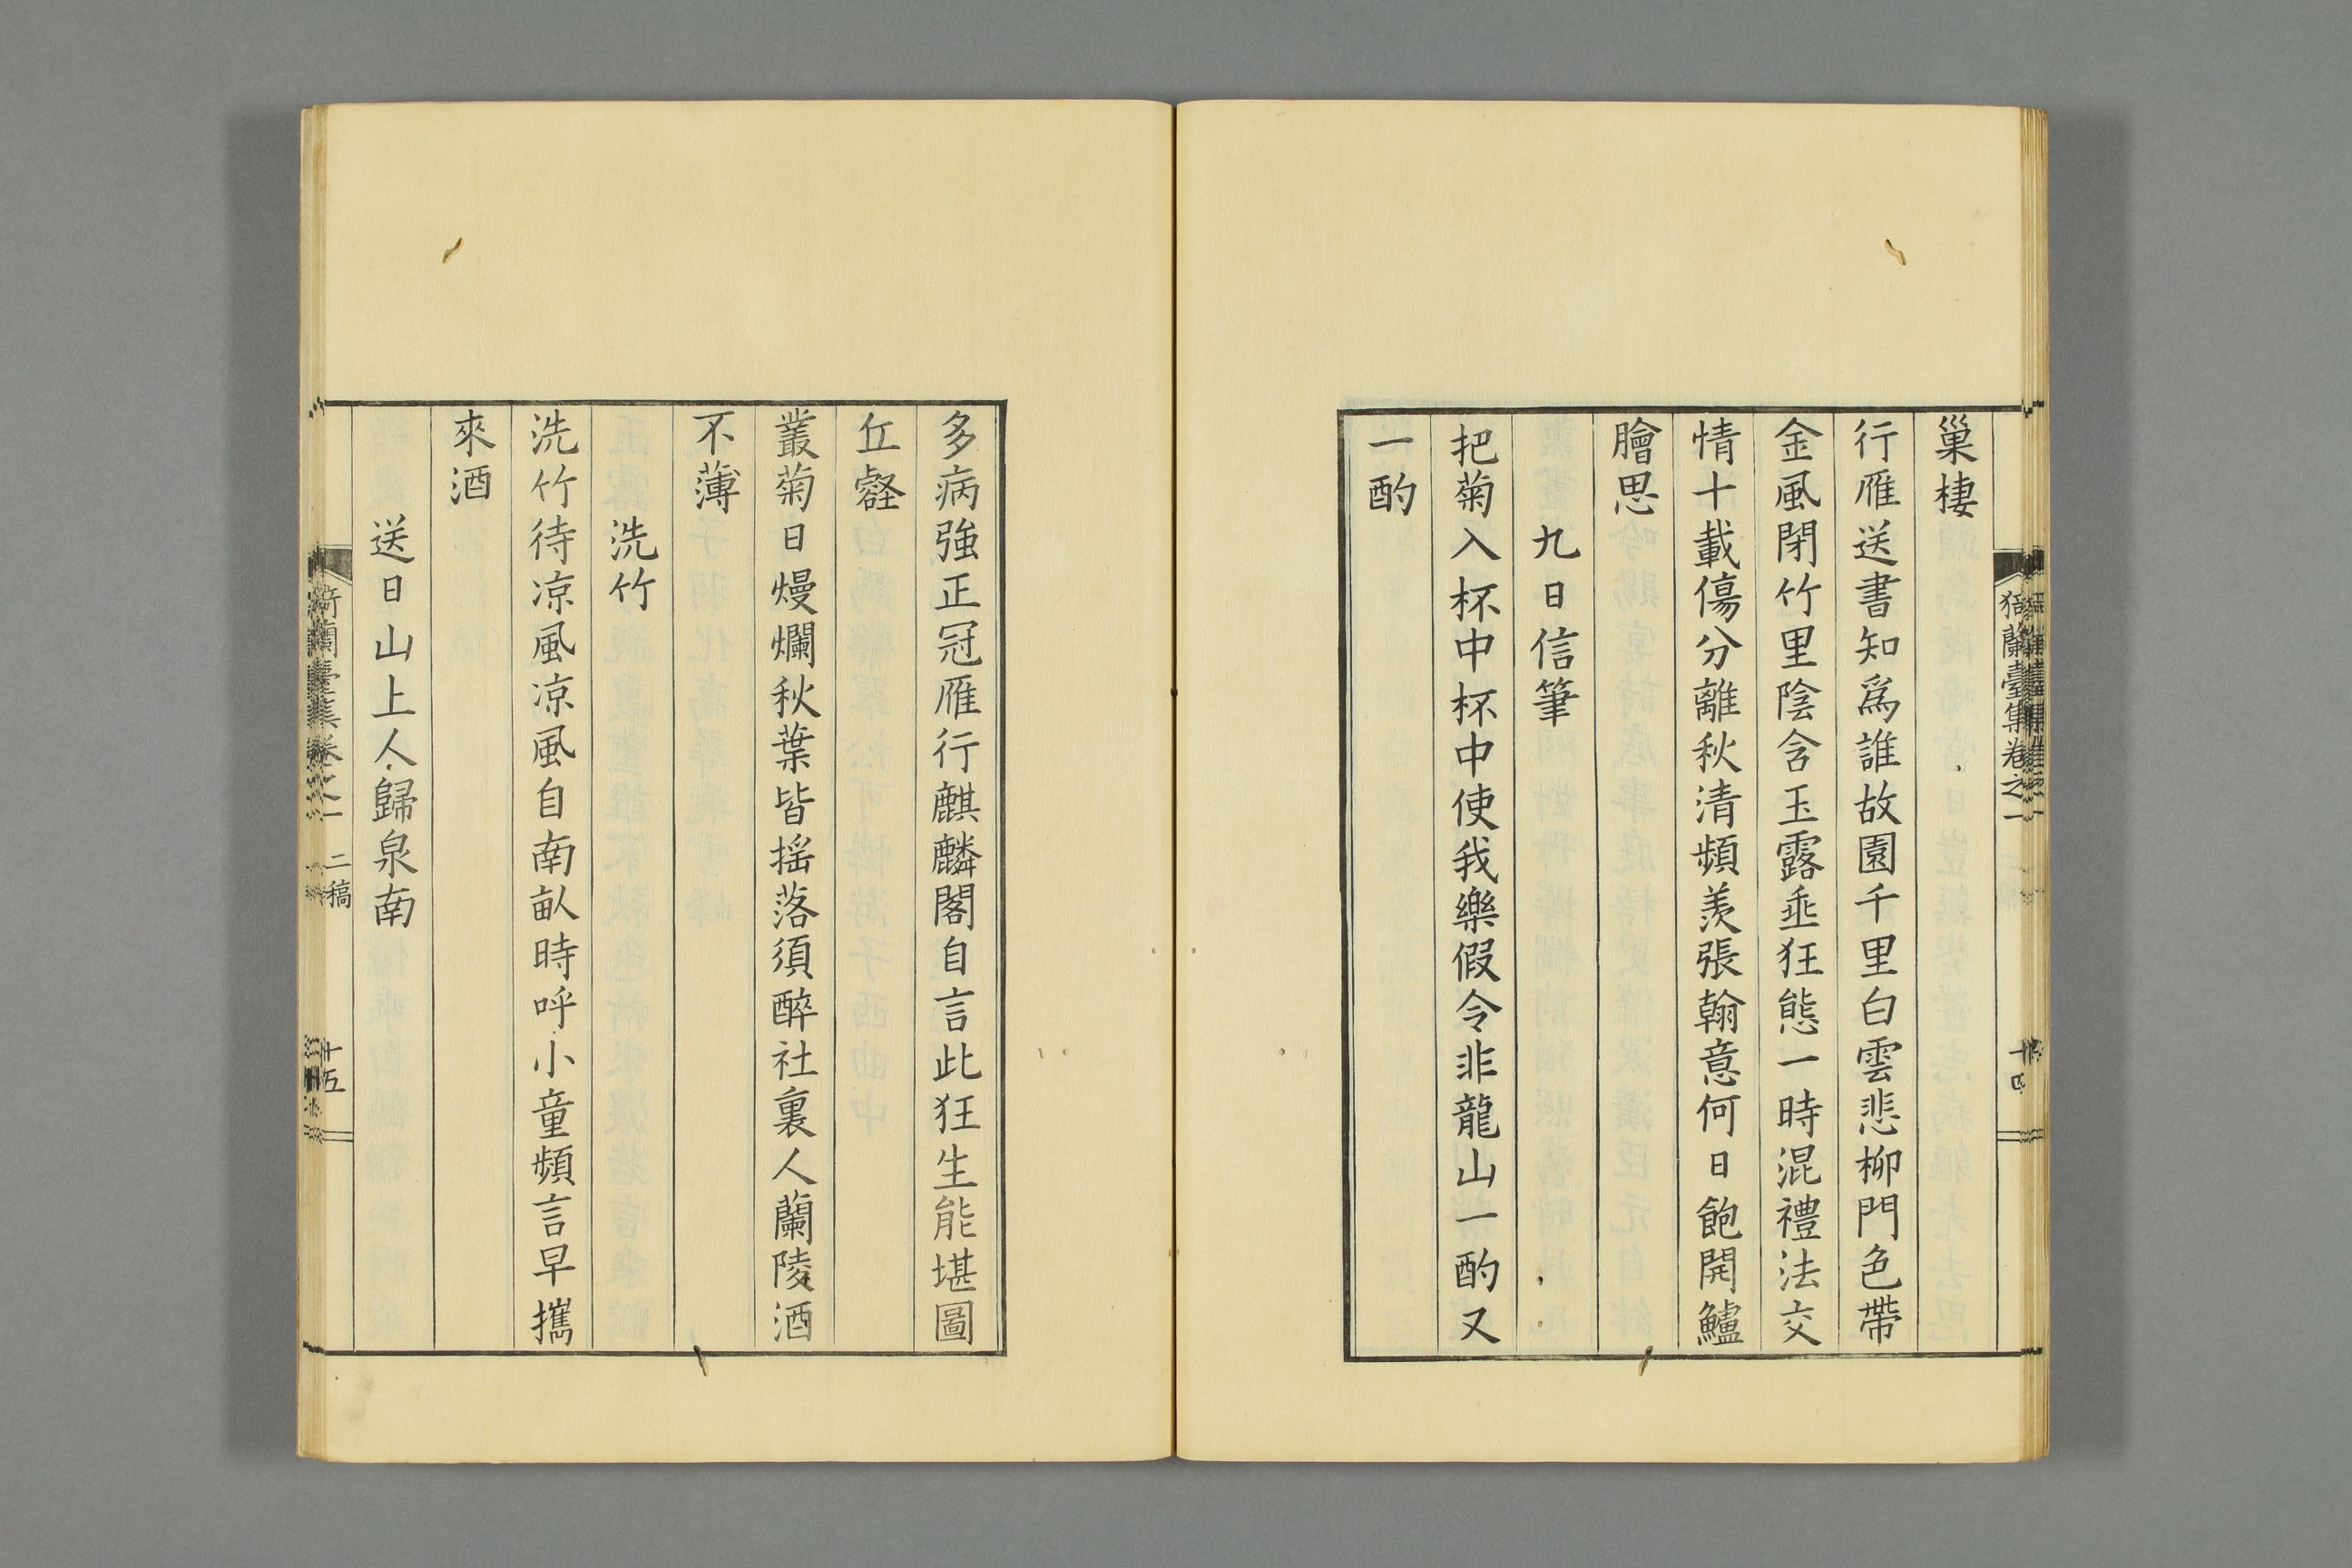 巢棲
行雁送書知爲誰故園千里白雲悲柳門色帶
金風閉竹里陰含玉露垂狂態一時混禮法交
情十載傷分離秋清頻羨張翰意何日飽開鱸
膾思
九日信筆
把菊入杯中杯中使我樂假令非龍山一酌又
一酌
多病強正冠雁行麒麟閣自言此狂生能堪圖
丘壑
叢菊日熳爛秋葉皆搖落須醉社裏人蘭陵酒
不薄
洗竹
洗竹待凉風凉風自南畝時呼小童頻言早攜
來酒
送日山上人歸泉南
蘭臺集卷之一
二稿
十五